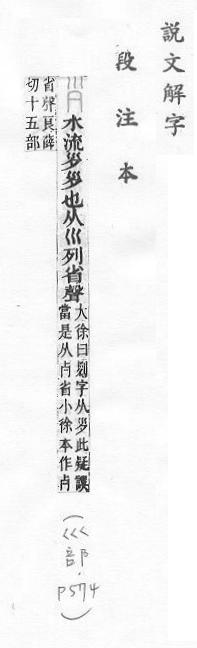 説文解字
段注本
水流𡿪𡿪也从巛列省聲
大徐曰列字从𡿪此疑誤
當是从歺省小徐本作歺
省聲良薛
切十五部
(巛部.p574)